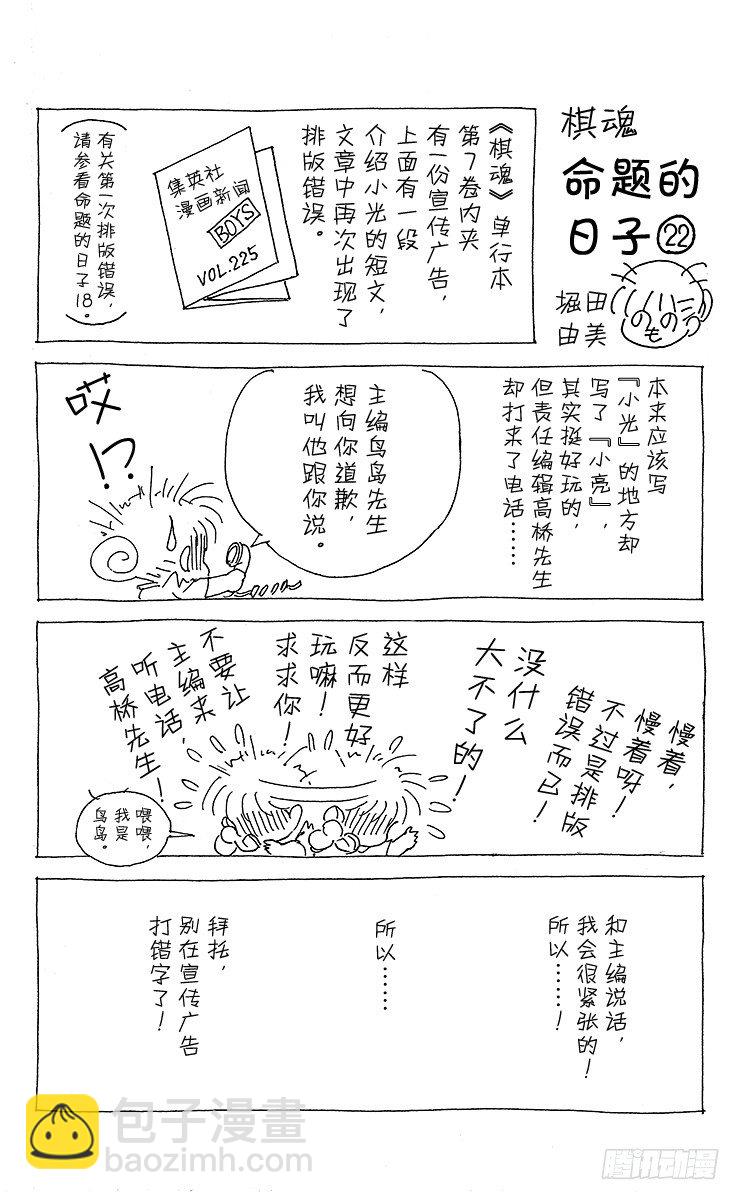 棋魂
命题的
日子㉒
堀田
由美
《棋魂》单行本
第7卷内夹
有一份宣传广告，
上面有一段
介绍小光的短文，
文章中再次出现了
排版错误。
集英社
漫画新闻
BOYS
VOL.225
（有关第一次排版错误，
请参看命题的日子18。）
本来应该写
『小光』的地方却
写了『小亮』，
其实挺好玩的，
但责任编辑高桥先生
却打来了电话……
主编鸟岛先生
想向你道歉，
我叫他跟你说。
哎!?
慢着，
慢着呀！
不过是排版
错误而已！
没什么
大不了的！
这样
反而更好
玩嘛！
求求你！
不要让
主编来
听电话，
高桥先生！
喂喂，
我是
鸟岛。
和主编说话，
我会很紧张的！
所以……！
所以……
拜托，
别在宣传广告
打错字了！
包子漫画
baozimh.com
腾讯动漫